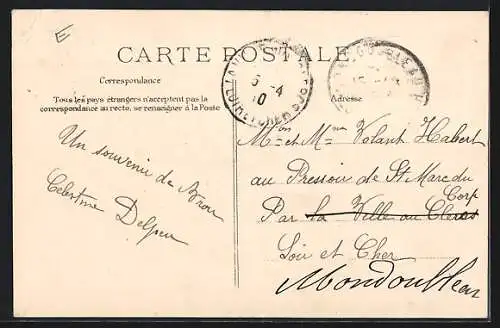 E
CARTE POSTALE
Correspondance
Tous les pays étrangers n'acceptent pas la
correspondance au recto, se renseigner à la Poste
Adresse
6 -4
10
LOIR-&-CHER
Un souvenir de Brou
Célestine
Mon et Mme Volant Habert
au Pressoir de St Marc du
Corp
Par la Ville au Clercs
Loir et Cher
Mondoubleau